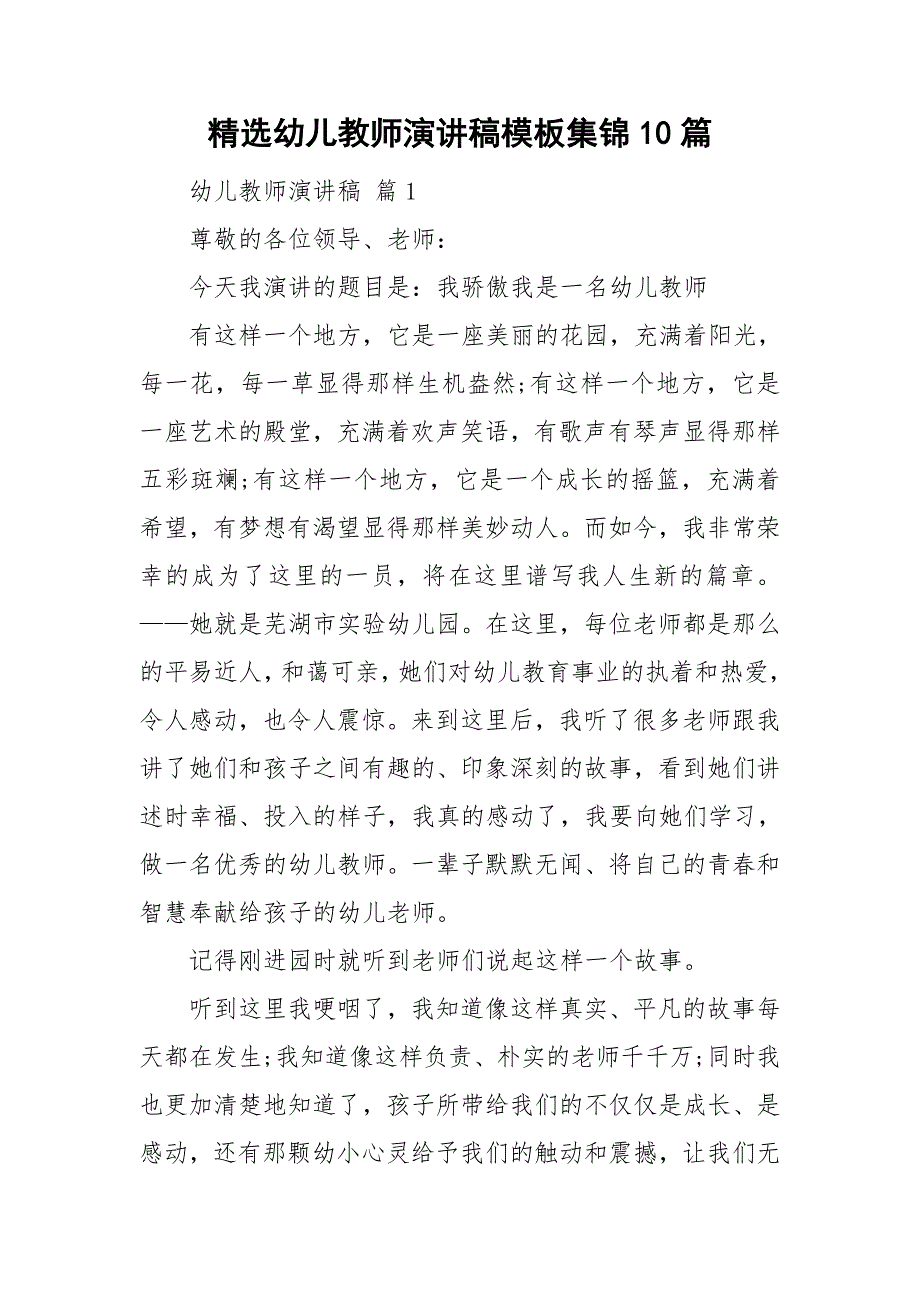 精选幼儿教师演讲稿模板集锦10篇
幼儿教师演讲稿 篇1
尊敬的各位领导、老师：
今天我演讲的题目是：我骄傲我是一名幼儿教师
有这样一个地方，它是一座美丽的花园，充满着阳光，
每一花，每一草显得那样生机盎然;有这样一个地方，它是
一座艺术的殿堂，充满着欢声笑语，有歌声有琴声显得那样
五彩斑斓;有这样一个地方，它是一个成长的摇篮，充满着
希望，有梦想有渴望显得那样美妙动人。而如今，我非常荣
幸的成为了这里的一员，将在这里谱写我人生新的篇章。
——她就是芜湖市实验幼儿园。在这里，每位老师都是那么
的平易近人，和蔼可亲，她们对幼儿教育事业的执着和热爱，
令人感动，也令人震惊。来到这里后，我听了很多老师跟我
讲了她们和孩子之间有趣的、印象深刻的故事，看到她们讲
述时幸福、投入的样子，我真的感动了，我要向她们学习，
做一名优秀的幼儿教师。一辈子默默无闻、将自己的青春和
智慧奉献给孩子的幼儿老师。
记得刚进园时就听到老师们说起这样一个故事。
听到这里我哽咽了，我知道像这样真实、平凡的故事每
天都在发生;我知道像这样负责、朴实的老师千千万;同时我
也更加清楚地知道了，孩子所带给我们的不仅仅是成长、是
感动，还有那颗幼小心灵给予我们的触动和震撼，让我们无